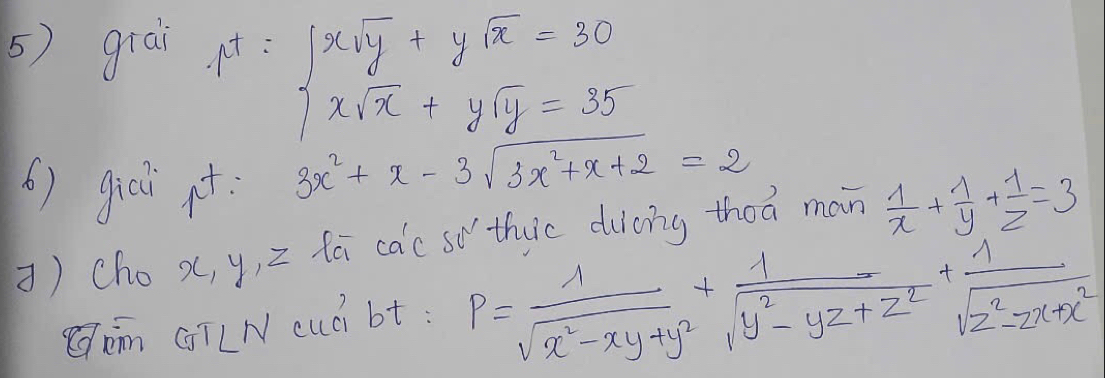 5) giải pt: { x√y + y√x = 30
x√x + y√y = 35
6) giải pt: 3x² + x - 3√(3x²+x+2) = 2
7) Cho x, y, z là các số thực dương thoả mãn 1/x + 1/y + 1/z = 3
Tìm GTLN của bt: P = 1/√(x²-xy+y²) + 1/√(y²-yz+z²) + 1/√(z²-zx+x²)